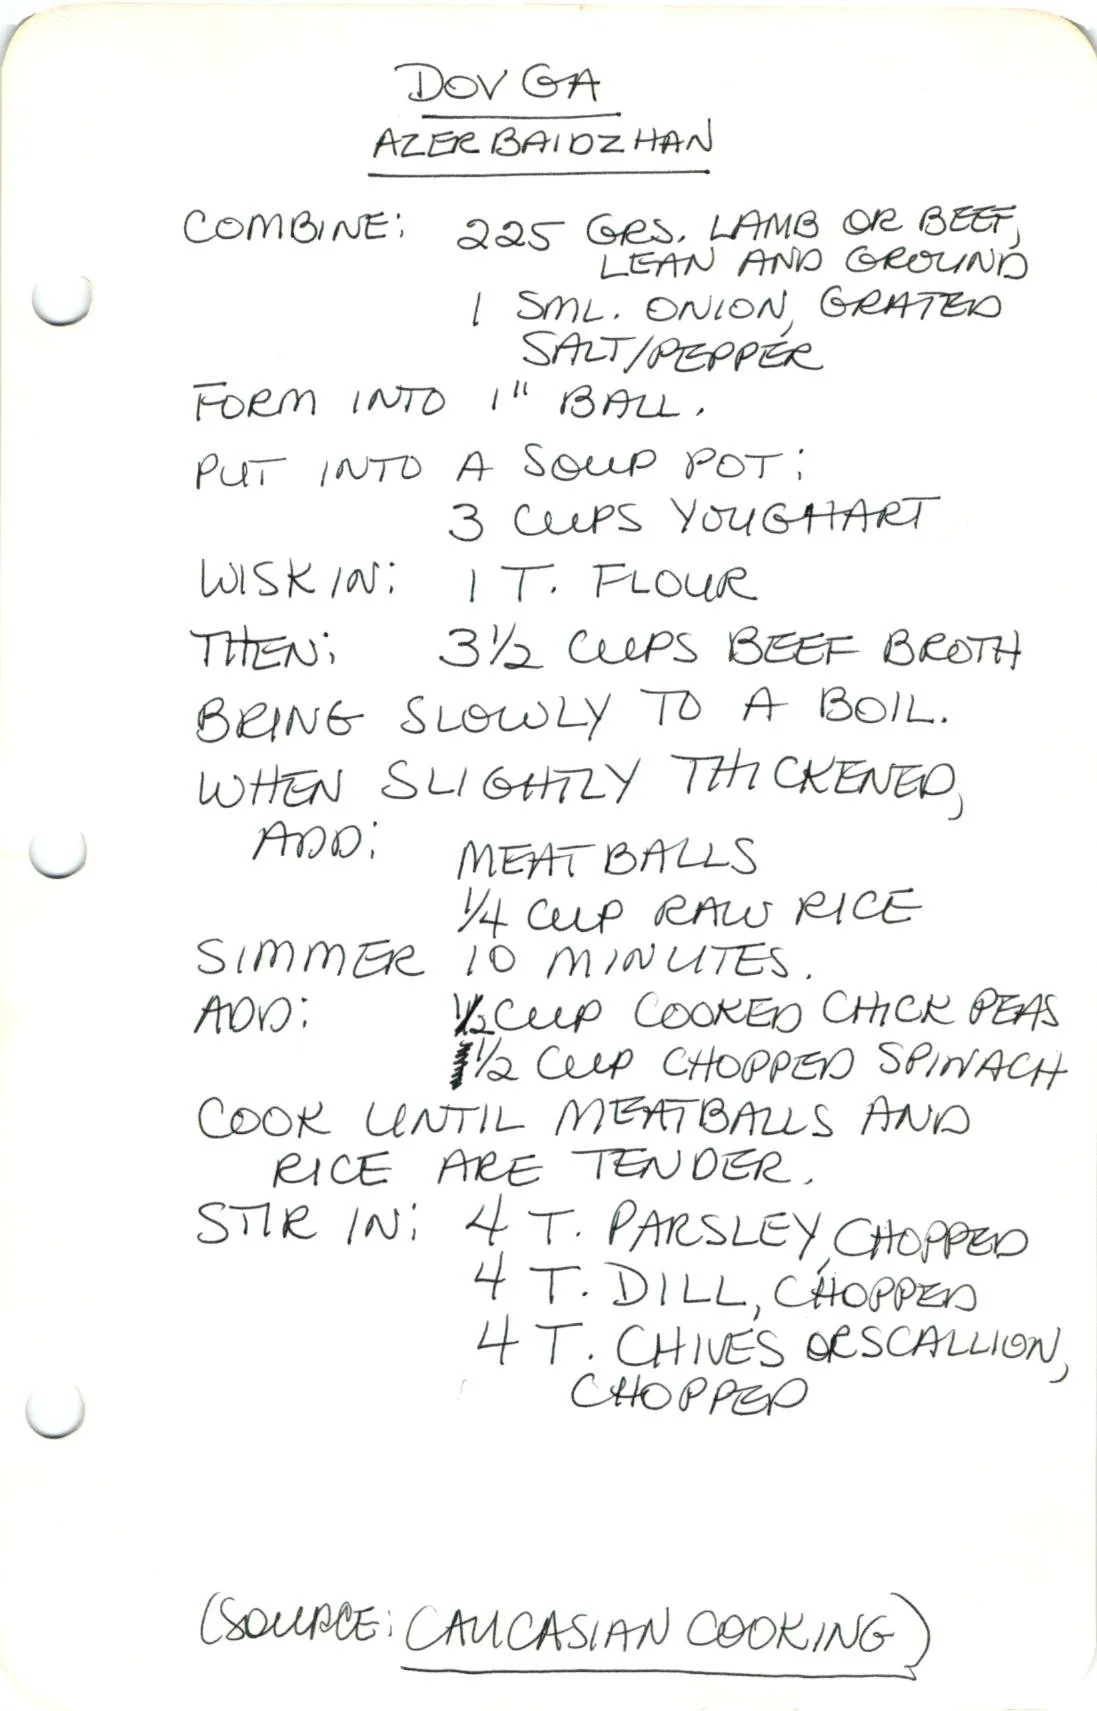 DOVGA
AZERBAIDZHAN
COMBINE: 225 GRS. LAMB OR BEEF,
LEAN AND GROUND
1 SML. ONION, GRATED
SALT/PEPPER
FORM INTO 1" BALL.
PUT INTO A SOUP POT:
3 CUPS YOUGHART
WISK IN: 1 T. FLOUR
THEN: 3 1/2 CUPS BEEF BROTH
BRING SLOWLY TO A BOIL.
WHEN SLIGHTLY THICKENED,
ADD: MEATBALLS
1/4 CUP RAW RICE
SIMMER 10 MINUTES.
ADD: 1/2 CUP COOKED CHICK PEAS
1/2 CUP CHOPPED SPINACH
COOK UNTIL MEATBALLS AND
RICE ARE TENDER.
STIR IN: 4 T. PARSLEY, CHOPPED
4 T. DILL, CHOPPED
4 T. CHIVES OR SCALLION,
CHOPPED
(SOURCE: CAUCASIAN COOKING)